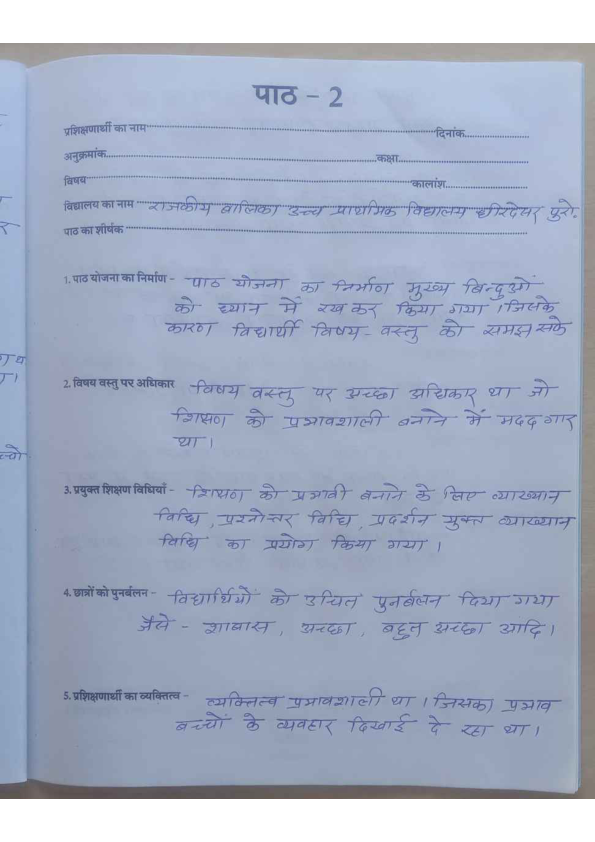 पाठ – 2
प्रशिक्षणार्थी का नाम दिनांक
अनुक्रमांक कक्षा
विषय कालांश
विद्यालय का नाम राजकीय बालिका उच्च प्राथमिक विद्यालय पुरो.
पाठ का शीर्षक
1. पाठ योजना का निर्माण - पाठ योजना का निर्माण मुख्य बिन्दुओं
को ध्यान में रख कर किया गया । जिसके
कारण विद्यार्थी विषय - वस्तु को समझ सके
2. विषय वस्तु पर अधिकार विषय वस्तु पर अच्छा अधिकार था जो
शिक्षण को प्रभावशाली बनाने में मददगार
था ।
3. प्रयुक्त शिक्षण विधियाँ - शिक्षण को प्रभावी बनाने के लिए व्याख्यान
विधि , प्रश्नोत्तर विधि , प्रदर्शन युक्त व्याख्यान
विधि का प्रयोग किया गया ।
4. छात्रों को पुनर्बलन - विद्यार्थियों को उचित पुनर्बलन दिया गया
जैसे - शाबास , अच्छा , बहुत अच्छा आदि ।
5. प्रशिक्षणार्थी का व्यक्तित्व - व्यक्तित्व प्रभावशाली था । जिसका प्रभाव
बच्चों के व्यवहार दिखाई दे रहा था ।